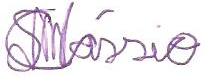 Mássio